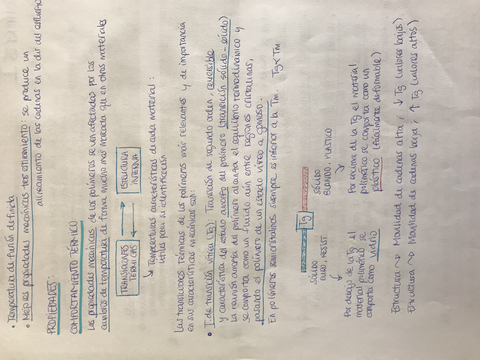 • Temperatura de fusión definida
• Mejores propiedades mecánicas tras estiramiento: se produce un
alineamiento de las cadenas en la dir del esfuerzo
PROPIEDADES:
COMPORTAMIENTO TÉRMICO
Las propiedades mecánicas de los polímeros se ven afectadas por los
cambios de temperatura de forma mucho más marcada que en otros materiales
TRANSICIONES TÉRMICAS
ESTRUCTURA INTERNA
↳ Temperaturas características de cada material:
útiles para su identificación
Las transiciones térmicas de los polímeros más relevantes y de importancia
en sus características mecánicas son:
• T de transición vítrea (Tg): Transición de segundo orden, reversible
y característica del estado amorfo del polímero (transición sólido-sólido)
La fracción amorfa del polímero alcanza el equilibrio termodinámico y
se comporta como un fluido aún entre regiones cristalinas,
pasando el polímero de un estado vítreo a gomoso.
En polímeros semicristalinos siempre es inferior a la Tm. Tg < Tm
Tg
SÓLIDO
DURO, RESIST.
SÓLIDO
BLANDO, PLÁSTICO
Por debajo de la Tg el
material polimérico se
comporta como vidrio
Por encima de la Tg el material
polimérico se comporta como un
plástico (fácilmente deformable)
Estructura → Movilidad de cadenas alta; ↓ Tg (valores bajos)
Estructura → Movilidad de cadenas baja; ↑ Tg (valores altos)